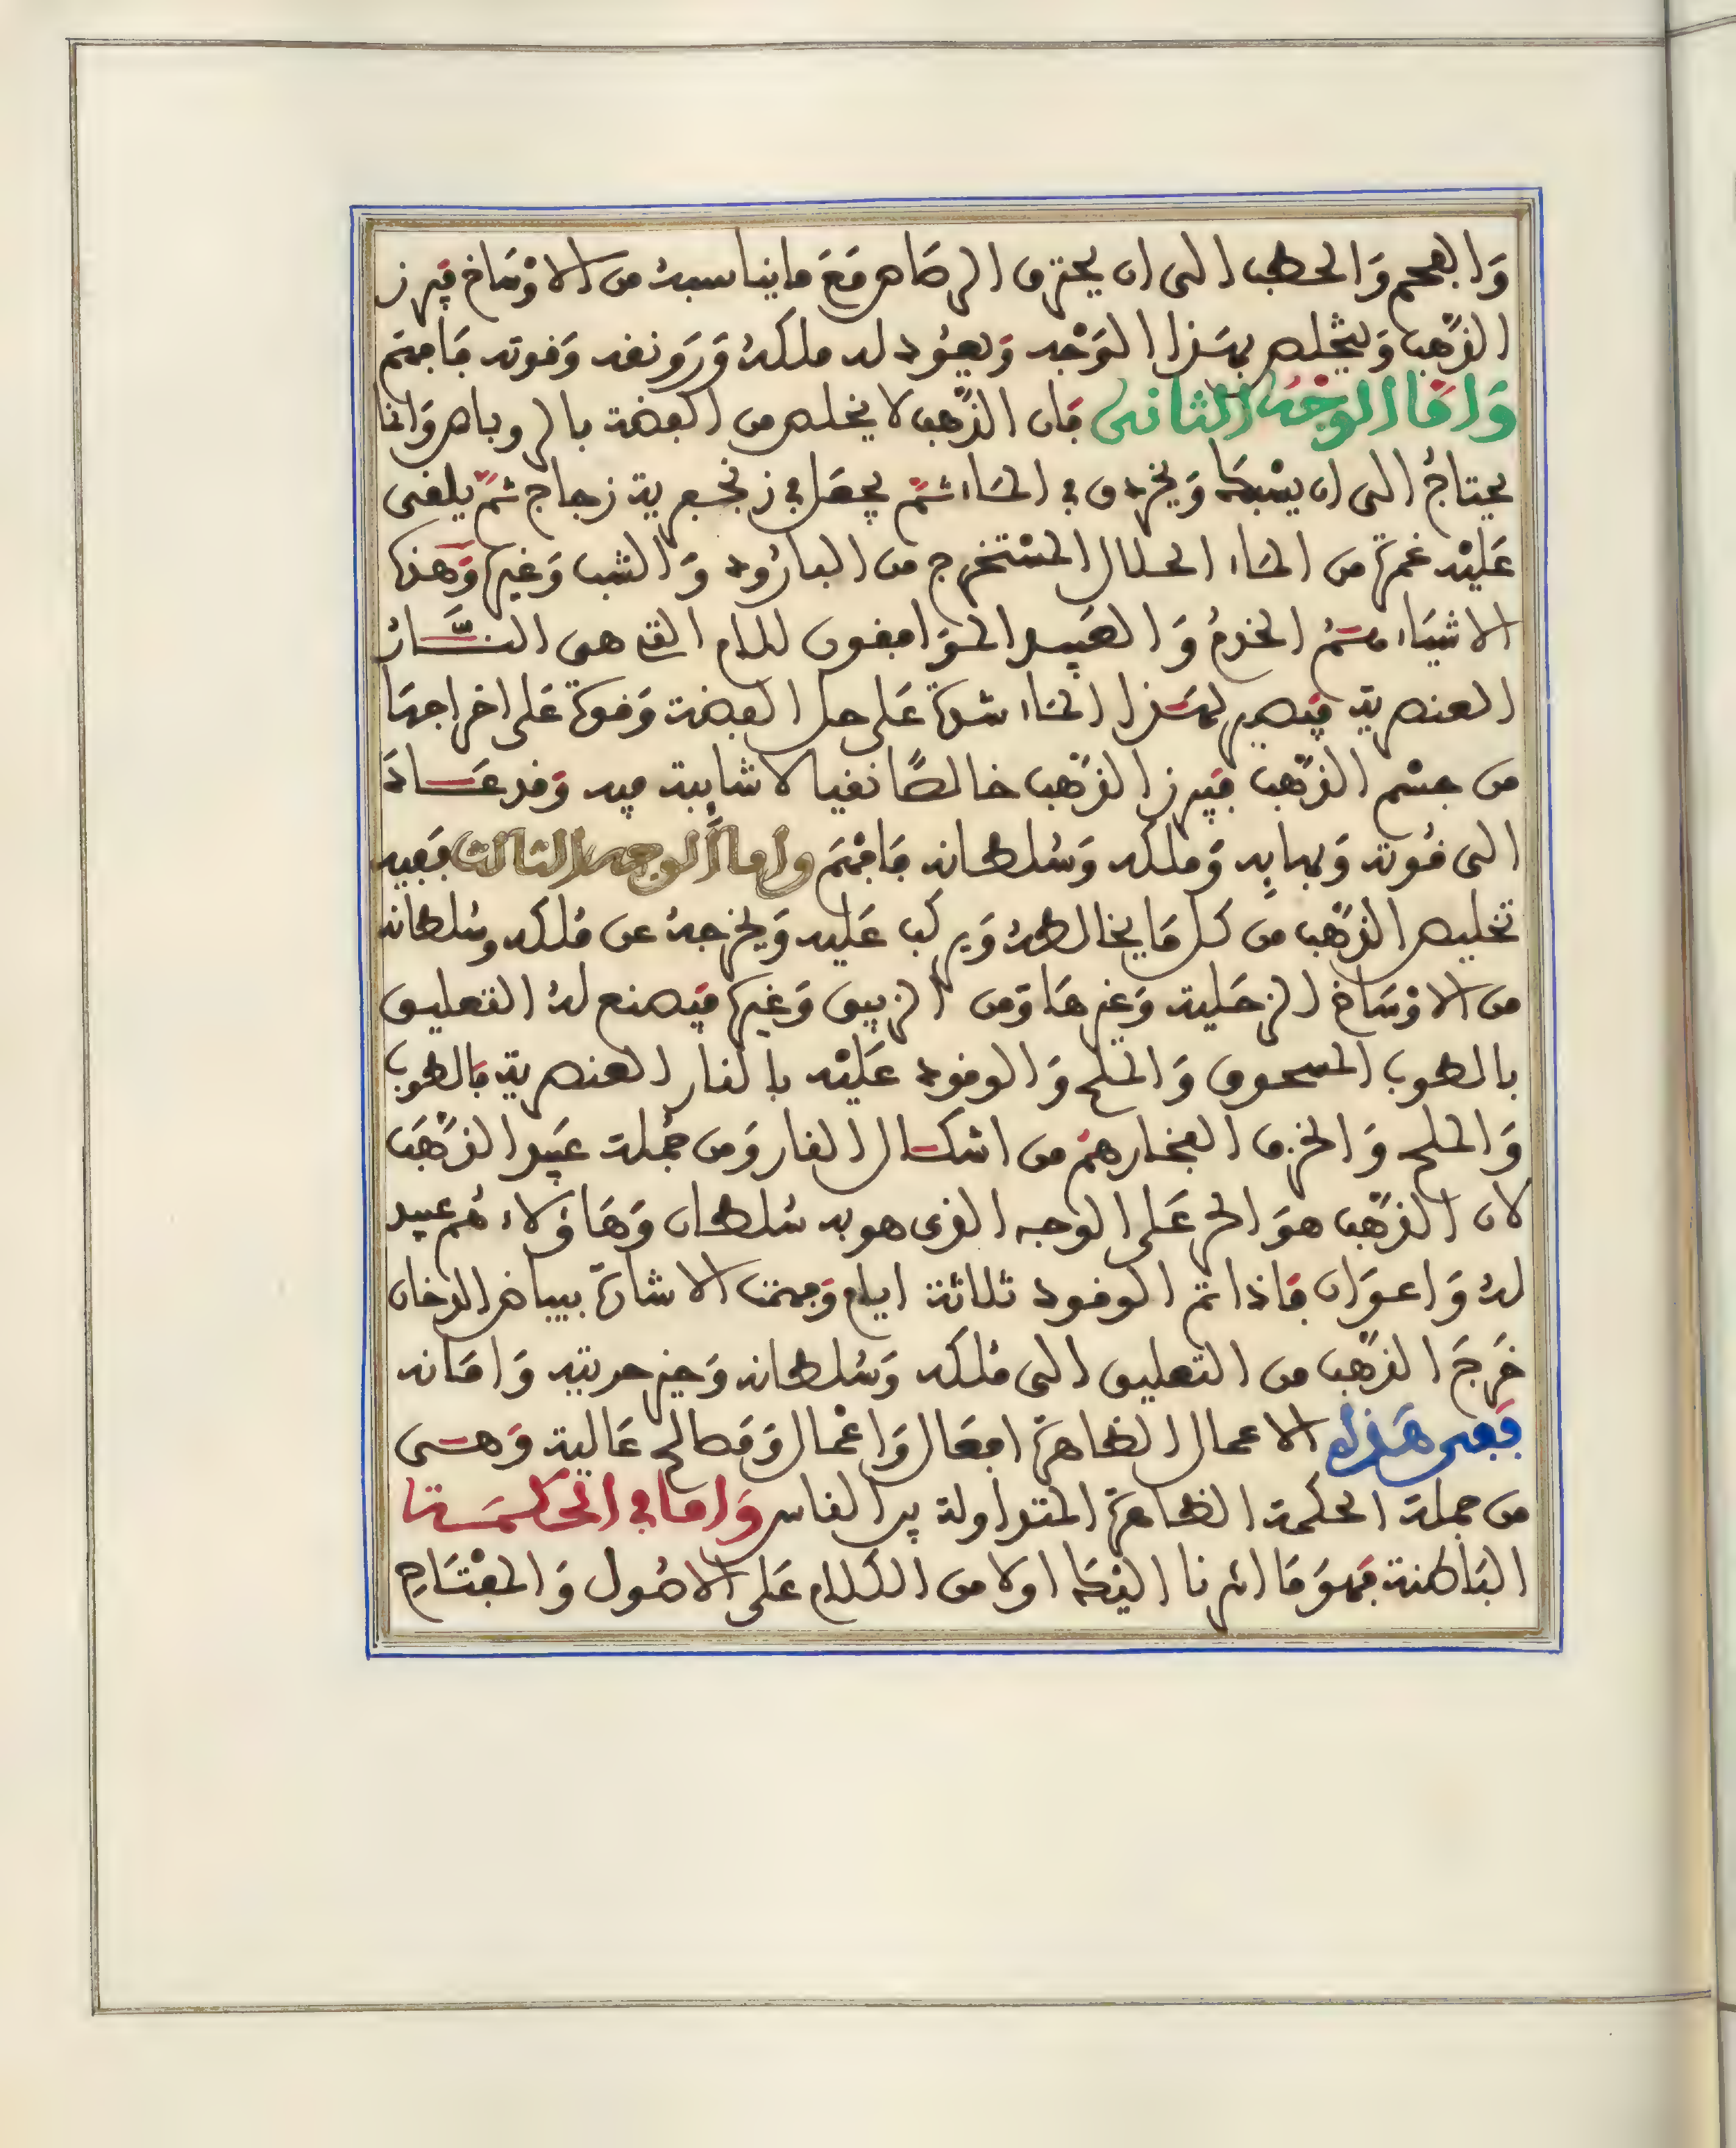 وَالفحم وَالحطب الى ان يحترق الرصَاص مَعَ ما يناسبه من الاوْسَاخ فيبرز
الذّهب وَيتخلص بهَذا الوَجْه وَيعُود له ملكهُ وَرَونقه وَقوته فَافهم
وَامَّا الوجْه الثانى فَان الذّهب لا يخلص من الفضة بالروباص وَانما
يحتاجُ الى ان يسْبكهَا وَيخردق فى المَاء ثمّ يجعَل فى زنجفرية زجاج ثمّ يلقى
عَليْه غمرة من المَاء الحلال المسْتخرج من البارُود وَالشب وَغيرهَا وَهذه
الاشيَاء هُم الخدمُ وَالعَبيد الموَافقون للام التى هى النَّارُ
العنصرية فيَصير لهَذا المَاء شدة عَلى حل الفضة وَقوة عَلى اخراجهَا
من جسْم الذّهب فيَبرز الذّهب خالصًا نقيا لا شايبة فيه وَقد عَادَ
الى قُوته وَبهايه وَملكه وَسُلطانه فَافهْم واما الوجه الثالث فَفيه
تخليص الذّهب من كل مَا يخالطهُ وَيركب عَليه وَيخرجهُ عن مُلكه وسُلطانه
من الاوْسَاخ الزحَلية وَغيرهَا وَمن الزيبق وَغيره فيَصنع لهُ التعليق
بالطوب المسحوق وَالملح وَالوقود عَليْه بالنار العنصرية فَالطوب
وَالملح وَالخزف الفخار همْ من اشكال النار وَمن جُملة عَبيد الذّهَب
لان الذّهب هوَ الحر عَلى الوجه الذى هو به سُلطان وَهَاؤلاء هُم عبيد
لهُ وَاعوَان فَاذا تم الوقود ثلاثة ايام وَجهمت الاشارة ببياض الدخان
خَرجَ الذّهب من التعليق الى مُلكه وَسُلطانه وَحيز حريته وَامَانه
فَفى هَذه الاعمال الظاهرَة افعَال وَاعْمال وَمَصالح عَالية وَهى
من جملة الحكمة الظاهرَة المتداولة بين الناس وَاما فى الحكمَة
البَاطنة فَهوَ مَا اشرنا اليهَا اولا من الكلام عَلى الاصُول وَالمفْتَاحِ